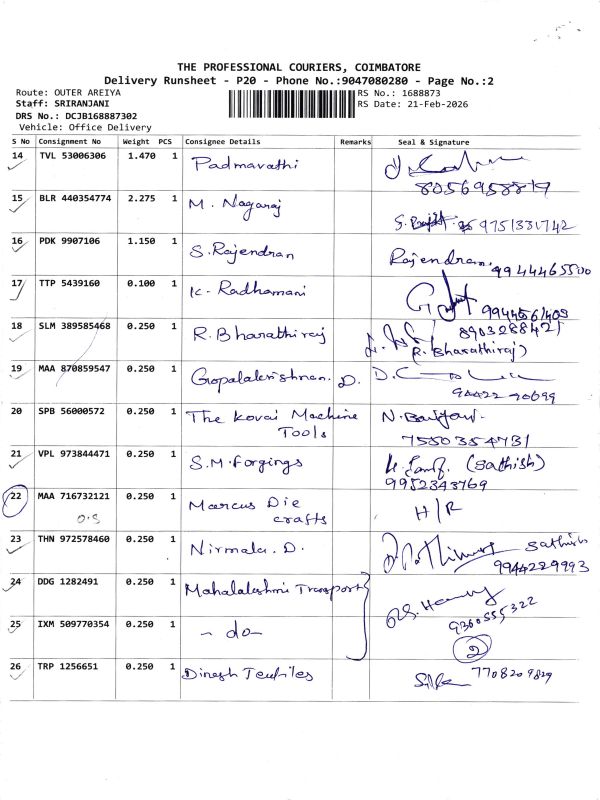 THE PROFESSIONAL COURIERS, COIMBATORE
Delivery Runsheet - P20 - Phone No.:9047080280 - Page No.:2
Route: OUTER AREIYA RS No.: 1688873
Staff: SRIRANJANI RS Date: 21-Feb-2026
DRS No.: DCJB168887302
Vehicle: Office Delivery
S No Consignment No Weight PCS Consignee Details Remarks Seal & Signature
14 TVL 53006306 1.470 1 Padmavathi
8056958819
15 BLR 440354774 2.275 1 M. Nagaraj
9751331742
16 PDK 9907106 1.150 1 S. Rajendran Rajendran. 9944465500
17 TTP 5439160 0.100 1 K. Radhamani
18 SLM 389585468 0.250 1 R. Bharathiraj 8903288421
R. Bharathiraj)
19 MAA 870859547 0.250 1 Gopalakrishnan. D.
20 SPB 56000572 0.250 1 The Kovai Machine
Tools 75503 54731
21 VPL 973844471 0.250 1 S.M. Forgings (Sathish)
9952343769
22 MAA 716732121 0.250 1 Marcus Die
crafts H/R
O.S
23 THN 972578460 0.250 1 Nirmala. D. Sathish
9944229993
24 DDG 1282491 0.250 1 Mahalakshmi Transport
9360555322
25 IXM 509770354 0.250 1 - do -
2
26 TRP 1256651 0.250 1 Dinesh Textiles 7708209829